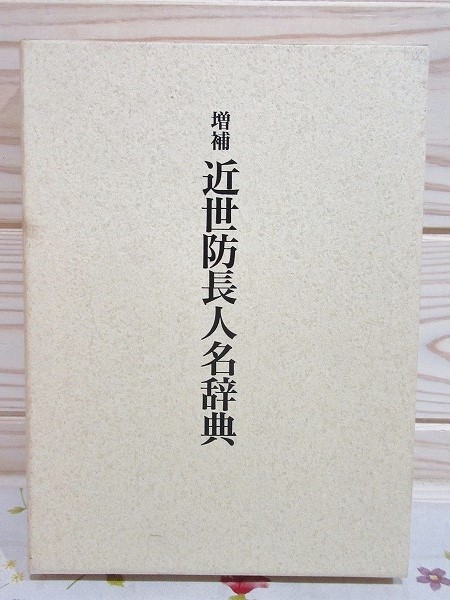 増補
近世防長人名辞典